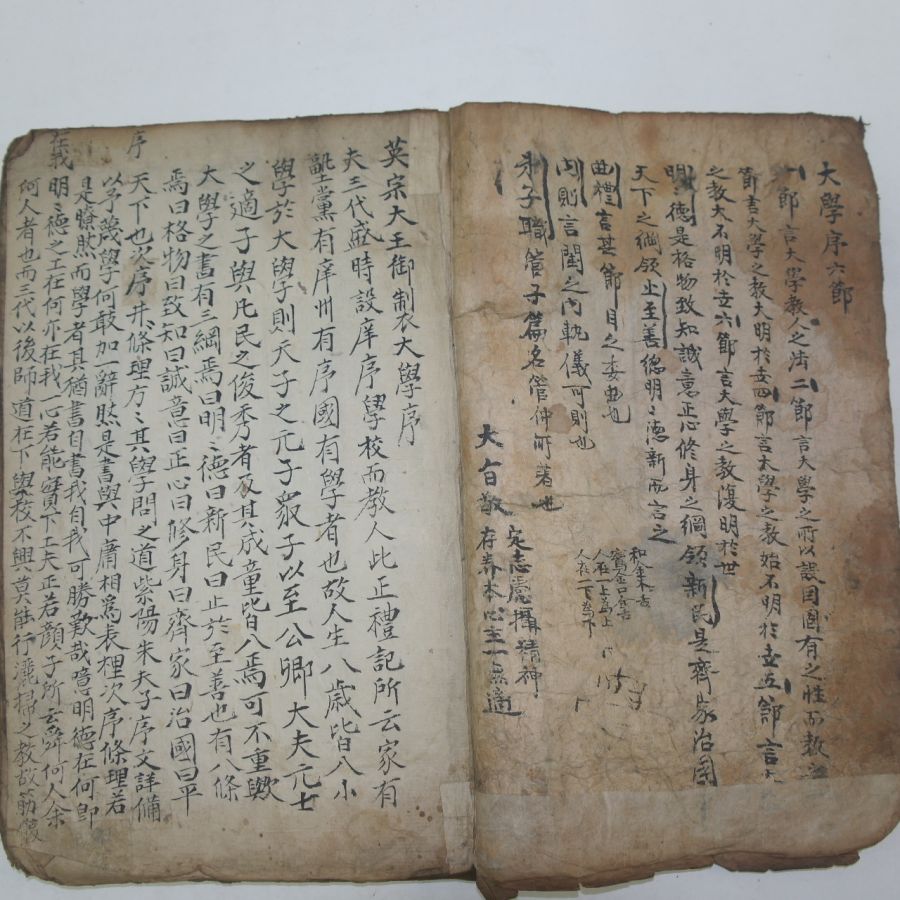 大學序六節
一節言大學教人之法二節言大學之所以設因固有之性而教
節言大學之教大明於世四節言大學之教始不明於世五節言
之教大不明於世六節言大學之教復明於世
明明德是格物致知誠意正心修身之綱領新民是齊家治國
天下之綱領止至善德明明德新而言之
曲禮言其節目之委曲也
內則言閨之內軌儀可則也
弟子職管子篇名管仲所著也
定志慮攝精神
大自敬存養本心主一無適
英宗大王御制大學序
夫三代盛時設庠序學校而教人此正禮記所云家有
塾黨有庠州有序國有學者也故人生八歲皆入小
學於大學則天子之元子眾子以至公卿大夫元士
之適子與凡民之俊秀者及其成童皆入焉可不重歟
大學之書有三綱焉曰明明德曰新民曰止於至善也有八條
焉曰格物曰致知曰誠意曰正心曰修身曰齊家曰治國曰平
天下也次序井井條理方方其學問之道紫陽朱夫子序文詳備
序
以予蔑學何敢加一辭然是書與中庸相為表裡次序條理若
是瞭然而學者其猶書自書我自我可勝歎哉噫明德在何卽
在我
明明德之工在何亦在我心若能實下工夫正若顏子所云舜何人余
何人者也而三代以後師道在下學校不興莫能行灑掃之教故筋骸